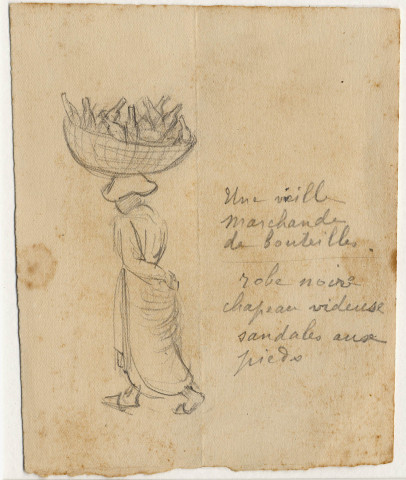 Une vieille
marchande
de bouteilles.
robe noire
chapeau videuse
sandales aux
pieds